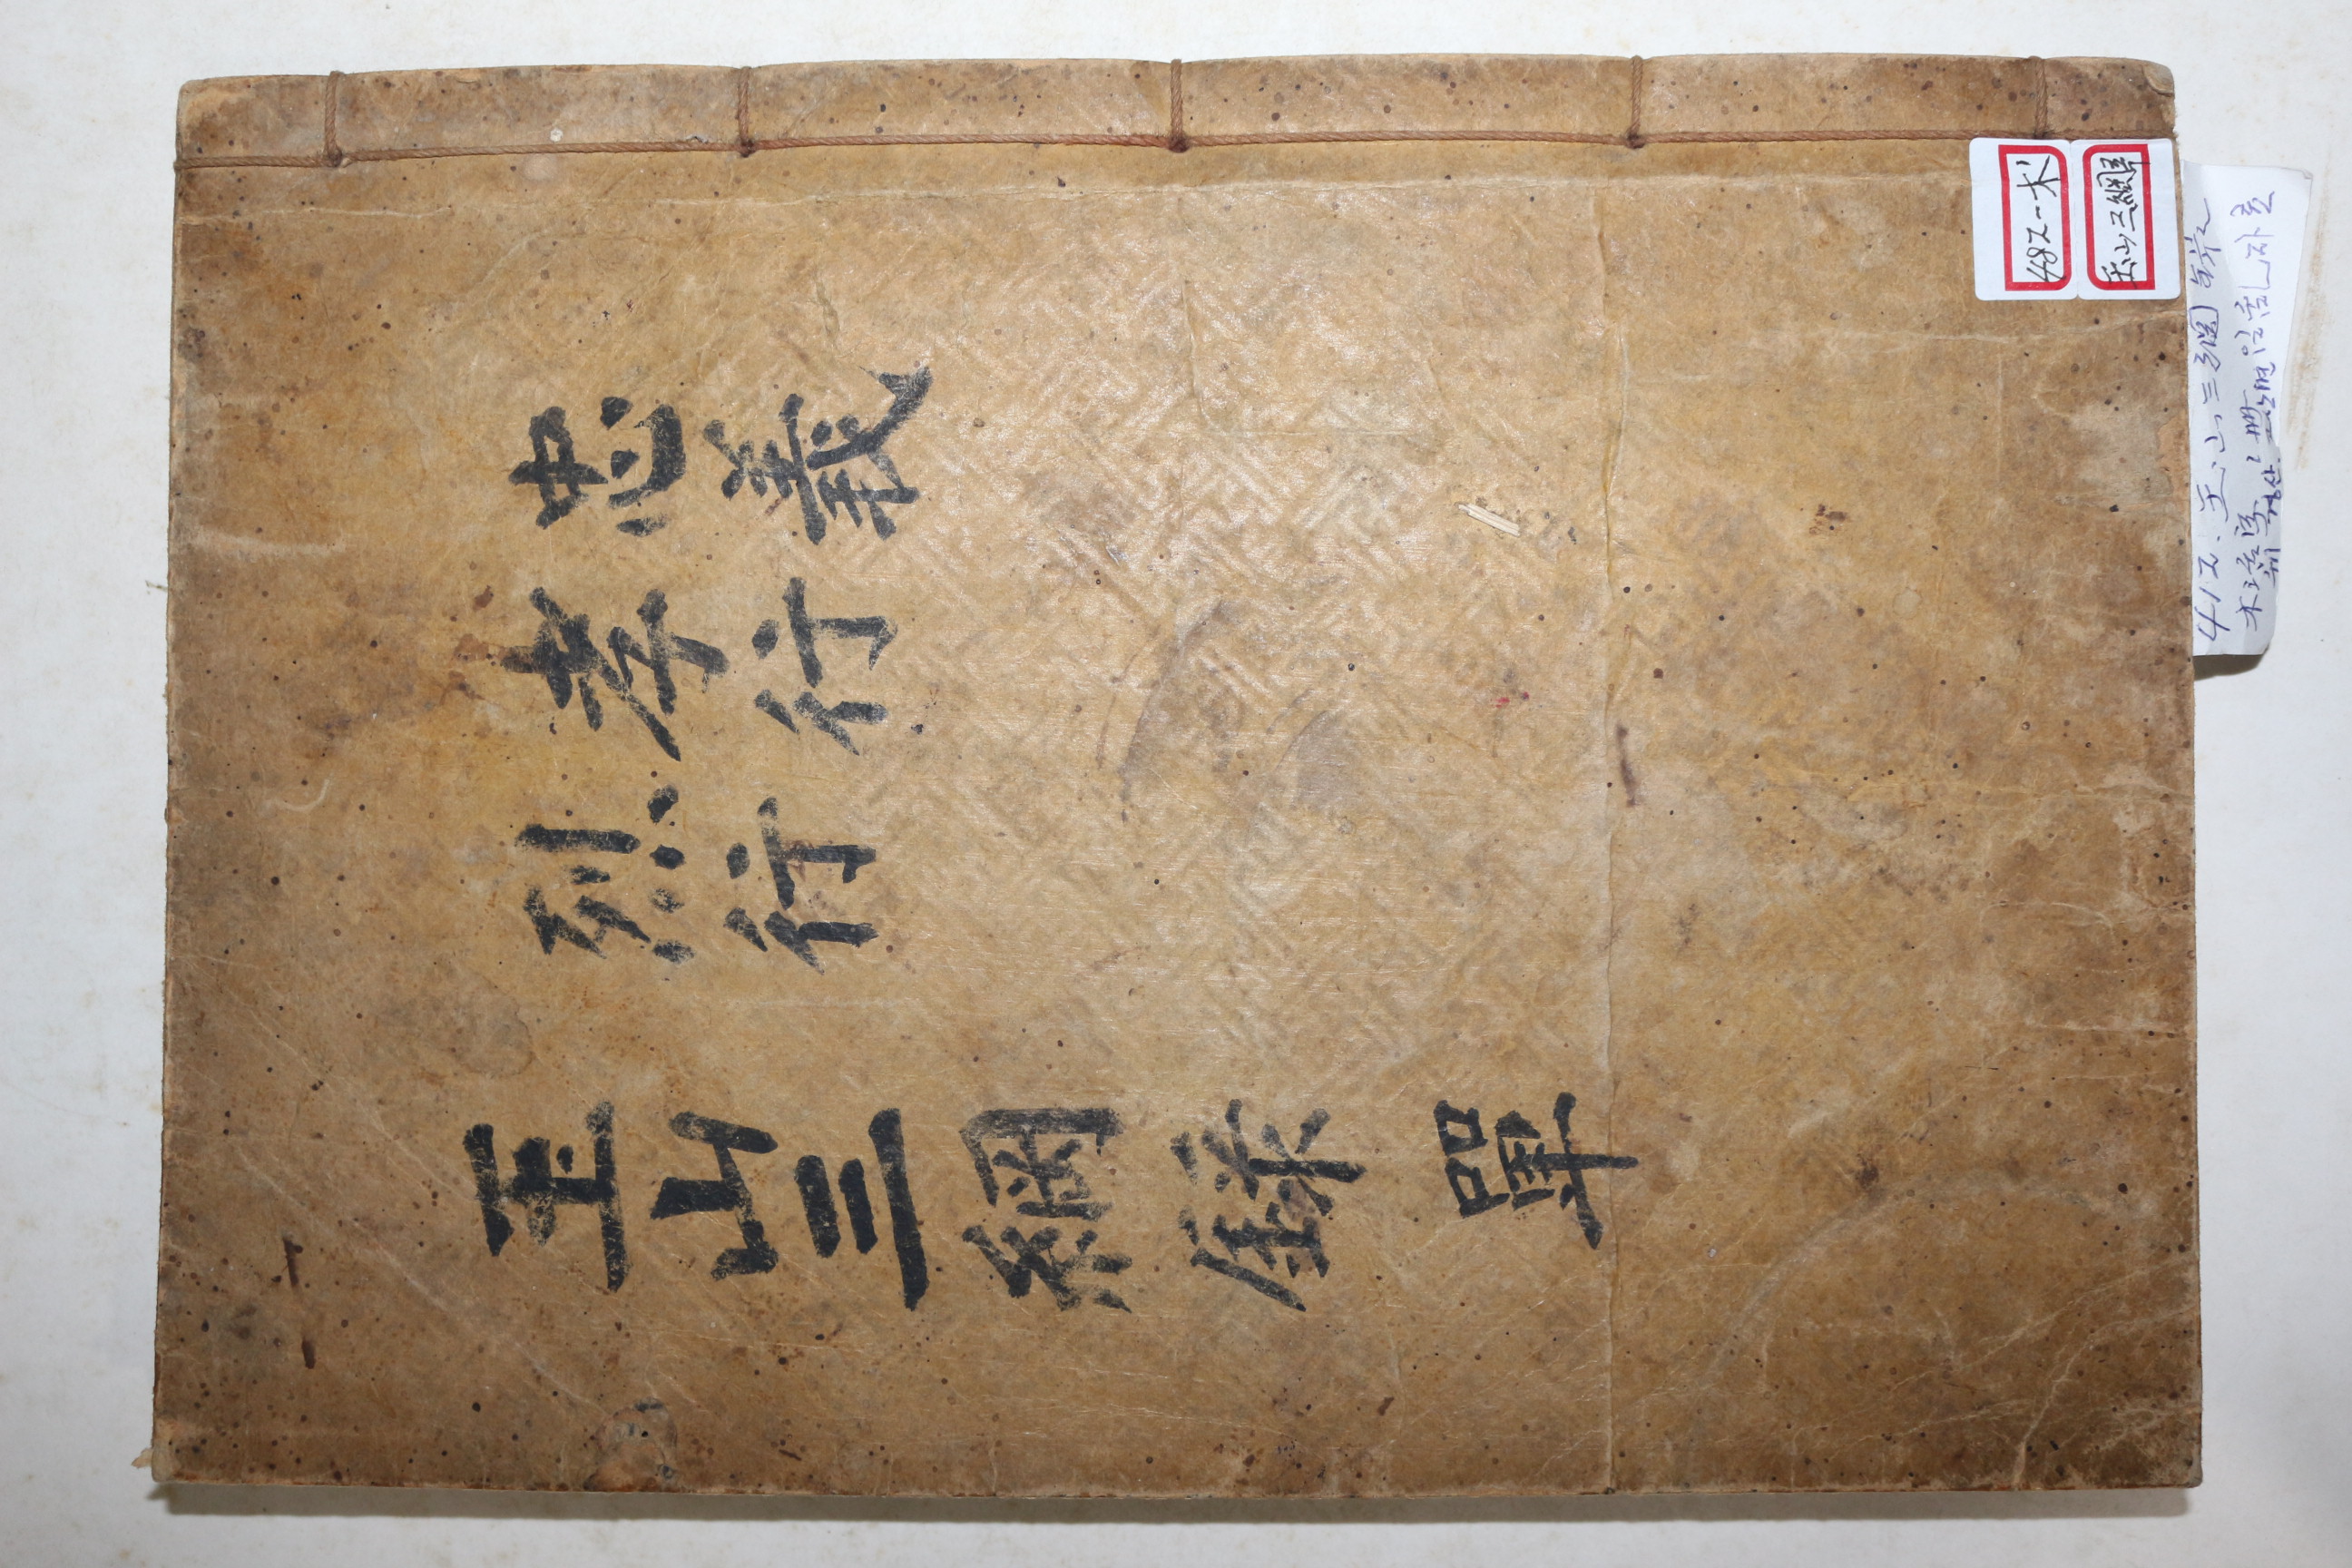 忠義
孝行
烈行
玉山三綱錄 單
482-木
玉山三綱單
412. 玉山三綱錄
木活字